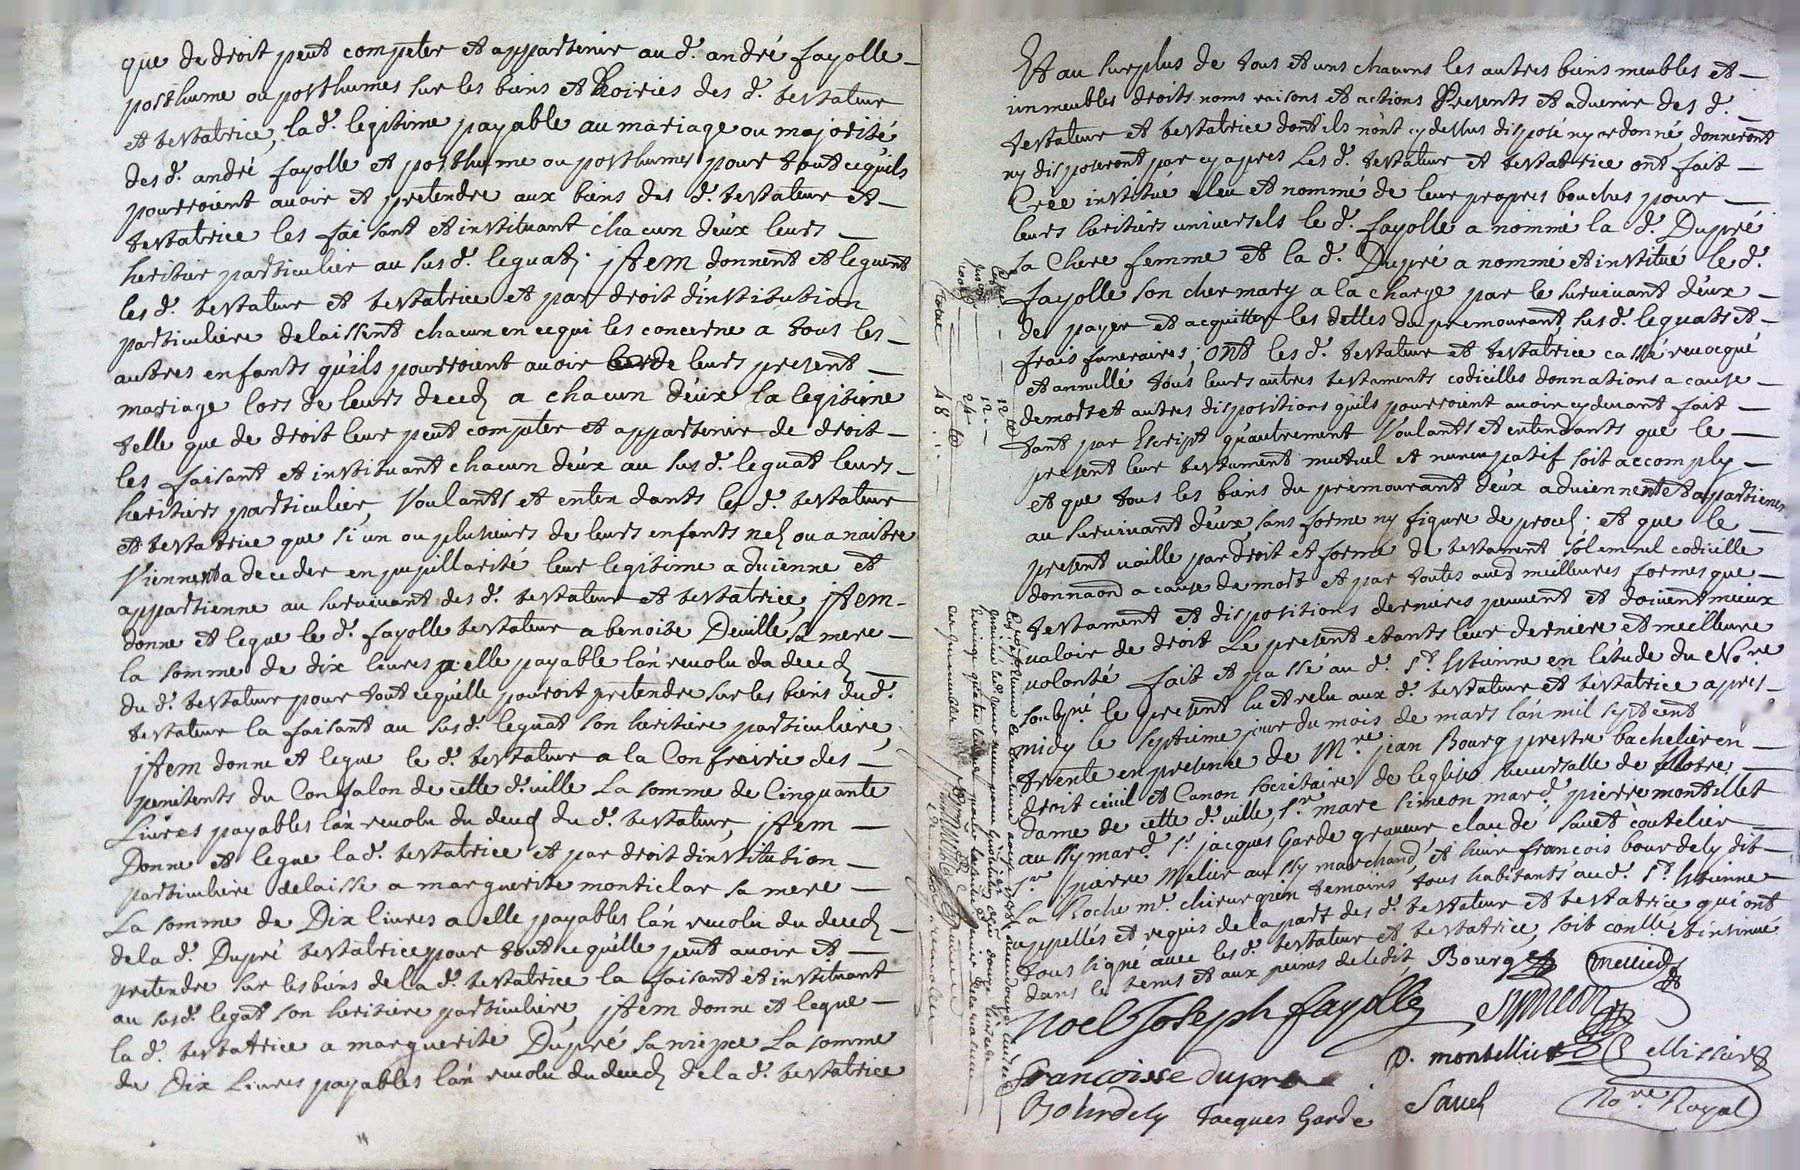 que de droit peut competer et appartenir au d. andré fayolle
posthume ou posthumes sur les biens et hoiries des d. testateur
et testatrice, la d. legitime payable au mariage ou majorité
des d. andré fayolle et posthume ou posthumes pour tout ce quils
pourroient avoir et pretendre aux biens des d. testateur et
testatrice les faisant et instituant chacun deux leurs
heritier particulier au susd. leguat; jtem donnent et leguent
les d. testateur et testatrice et par droit dinstitution
particuliere delaissent chacun en ce qui les concerne a tous les
autres enfants quils pourroient avoir leurs present
mariage lors de leurs deced a chacun d'eux la legitime
telle que de droit leur peut competer et appartenir de droit
les faisant et instituant chacun deux au susd. leguat leurs
heritiers particulier, Voulants et entendants les d. testateur
et testatrice que si un ou plusieurs de leurs enfants nes ou a naitre
Viennent a deceder en pupillarité leur legitime advienne et
appartienne au survivant des d. testateur et testatrice, jtem
donne et legue le d. fayolle testateur a benoite Deville sa mere
la somme de dix livres a elle payable lan revolu du deced
du d. testateur pour tout ce quelle pourroit pretendre sur les biens du d.
testateur la faisant au susd. leguat son heritiere particuliere,
jtem donne et legue le d. testateur a la Confrairie des
penitents du Confalon de cette d. ville La somme de Cinquante
Livres payables lan revolu du deced du d. testateur, jtem
Donne et legue la d. testatrice et par droit dinstitution
particuliere delaisse a marguerite monticlar sa mere
La somme de Dix livres a elle payables lan revolu du deced
de la d. Dupré testatrice pour tout ce quelle peut avoir et
pretendre sur les biens de la d. testatrice la faisant et instituant
au susd. legat son heritiere particuliere, jtem donne et legue
la d. testatrice a marguerite Dupré sa niepce La somme
de Dix Livres payables lan revolu du deced de la d. testatrice
Et au surplus de tous et uns chacuns les autres biens meubles et
immeubles droits noms raisons et actions Presents et advenir des d.
testateur et testatrice dont ils nont cy dessus disposé ny ordonné, donneront
ny disposeront par cy apres Les d. testateur et testatrice ont fait
Crée institué eleu et nommé de leur propres bouches pour
leurs heritiers universels le d. fayolle a nommé la d. Dupré
sa Chere femme et la d. Dupré a nommé et institué le d.
fayolle son cher mary a la charge par le survivant deux
de payer et acquitter les dettes du premourant, susd. leguats et
frais funeraires; ont les d. testateur et testatrice cassé revocqué
et annullé tous leurs autres testaments codicilles donnations a cause
de mort et autres dispositions quils pourroient avoir cy devant fait
tant par Escript quautrement Voulants et entendants que le
present leur testament mutuel et nuncupatif soit accomply
et que tous les biens du premourant deux adviennent et appartienent
au survivant deux, sans forme ny figure de proces. et que le
present vaille par droit et forme de testament solemnel codicille
donnaon a cause de mort et par toutes autres meilleures formes que
testament et dispositions dernieres peuvent et doivent mieux
valoir de droit Le present etants leur derniere et meilleure
volonté fait et passé au d. St. Etienne en letude du No.re
soubné le present lu et relu aux d. testateur et testatrice apres
midy le septieme jour du mois de mars lan mil sept cent
trente en presence de M.re jean Bourg prestre bachelier en
droit civil et Canon societaire de leglise succursalle de Nostre
Dame de cette d. ville, s.r marc simeon mard. pierre montillet
aussy mard. s.r jacques Garde graveur claude sauet coutelier
s.r pierre Melier aussy marchand, et sieur francois bourdely dit
La Roche m.e chirurgien temoins tous habitants au d. St. Etienne
appellés et requis de la part des d. testateur et testatrice qui ont
tous signé avec les d. testateur et testatrice, soit conllé et insinué
dans le tems et aux peines de ledit Bourg
Noel Joseph fayolle
symeon
francoisse dupre
P. montellier
Bourdely Jacques Garde
Sauet
No.re Royal